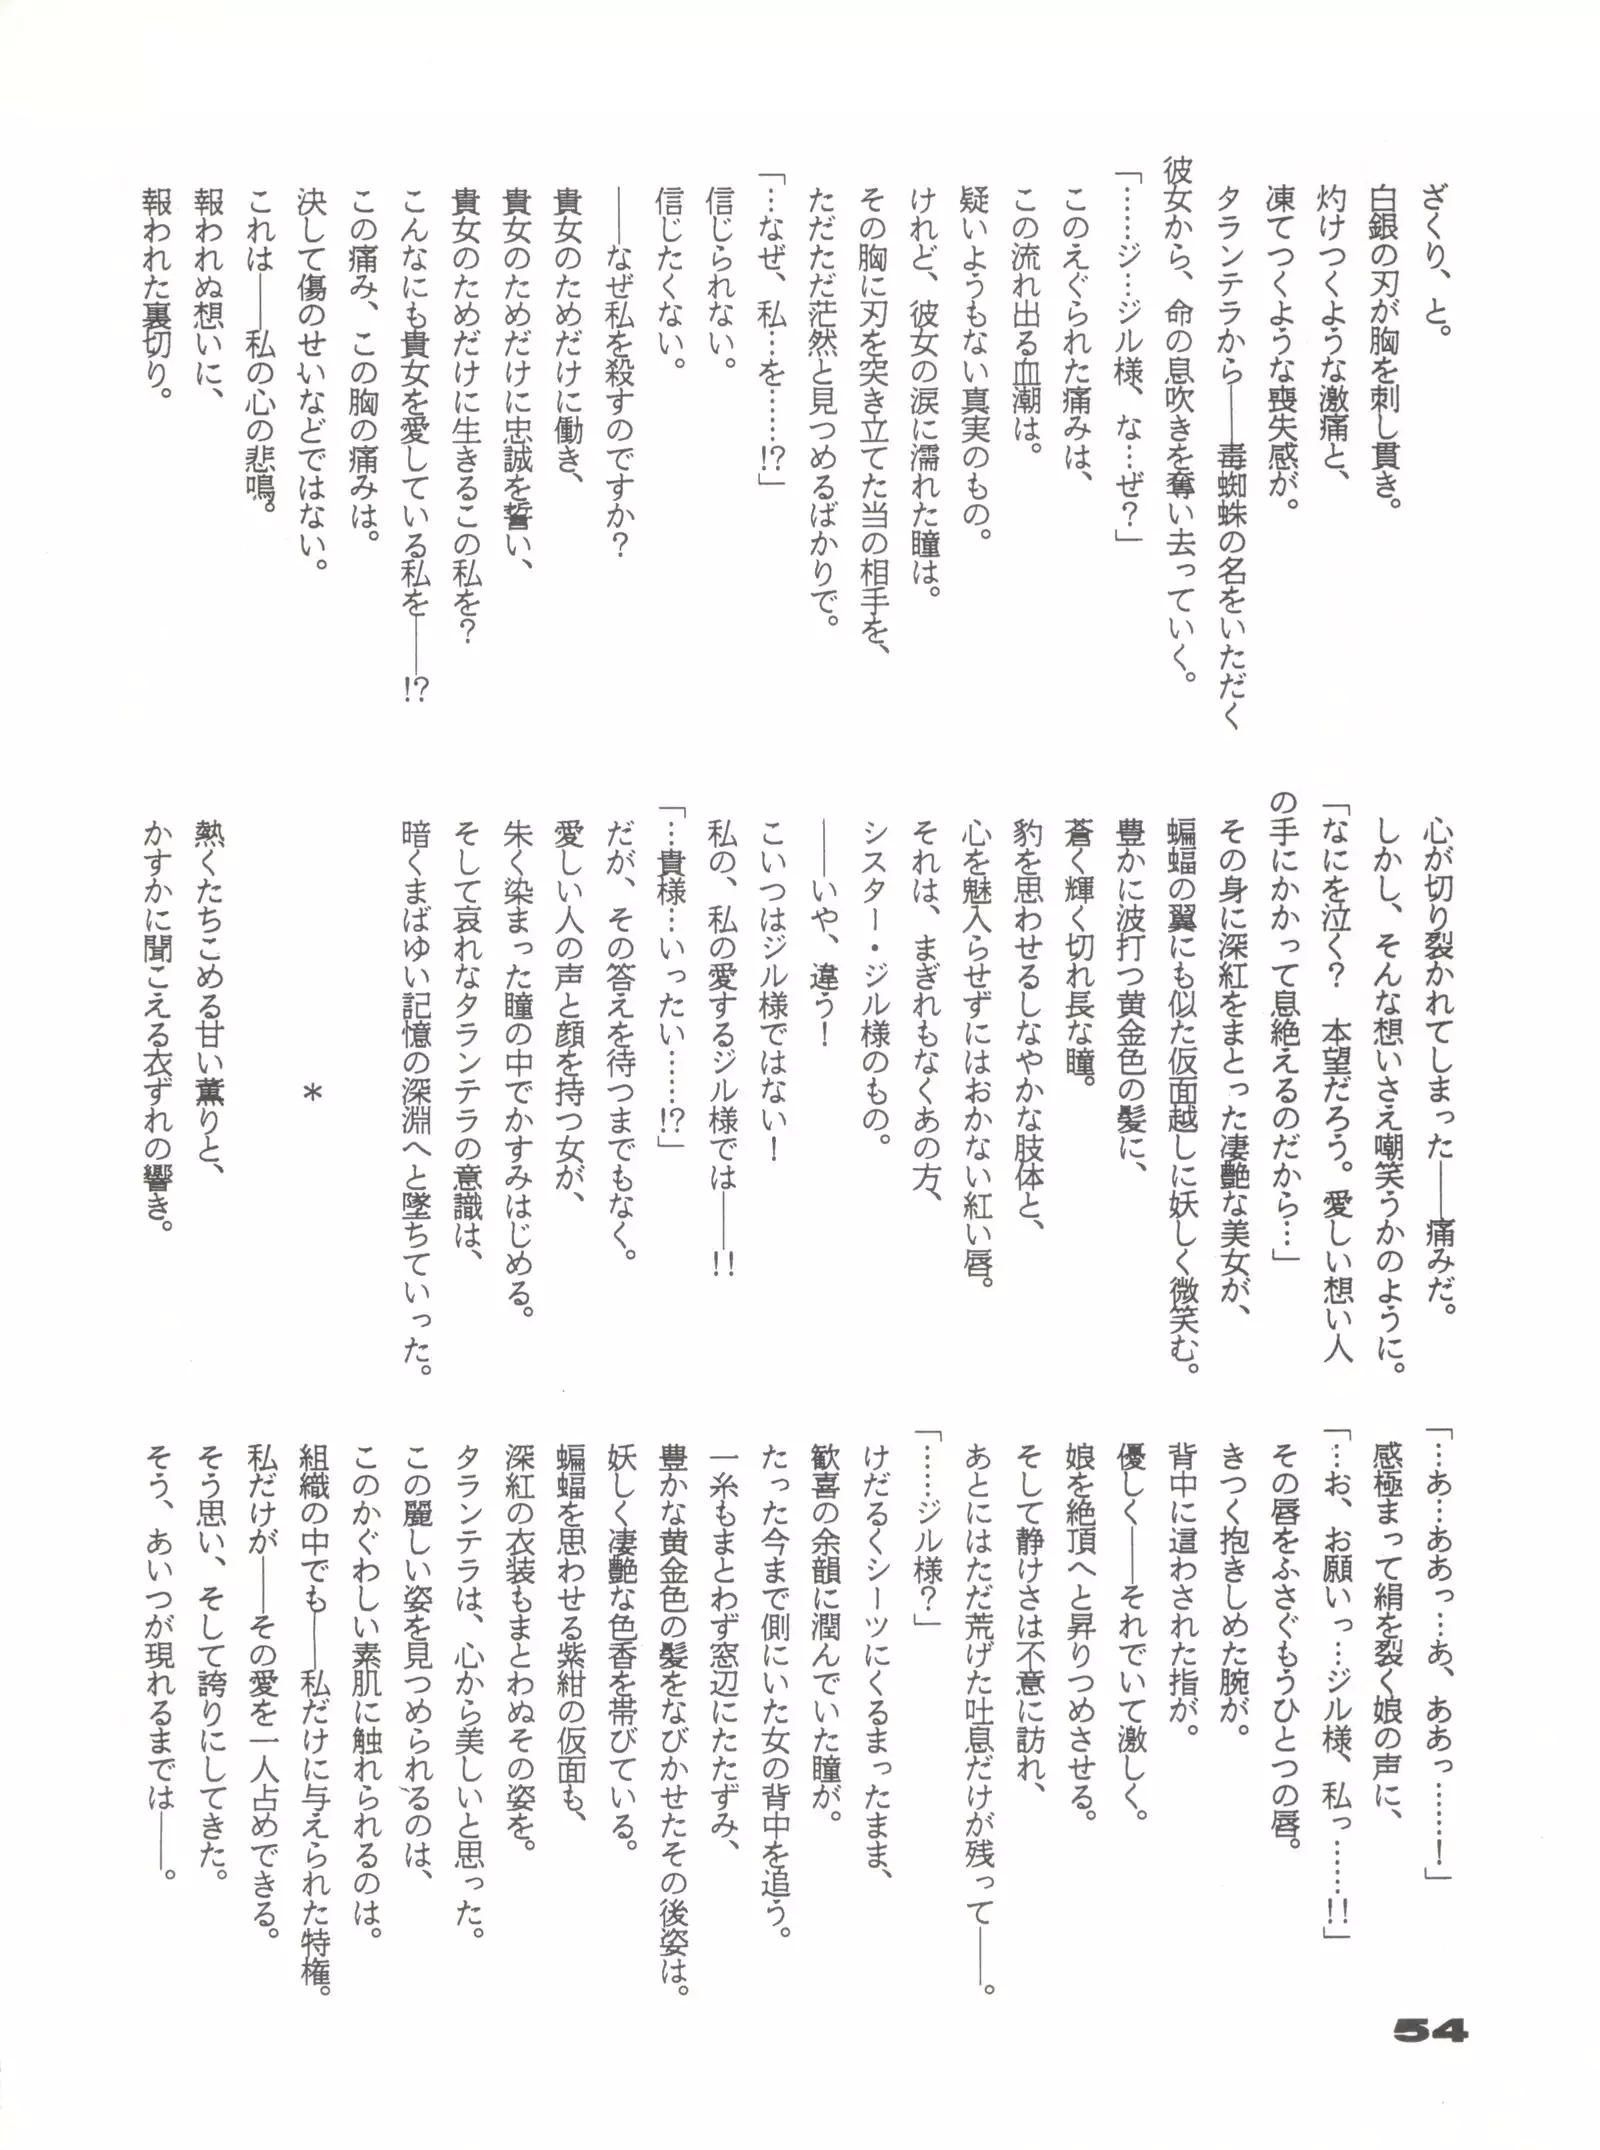 ざくり、と。
白銀の刃が胸を刺し貫き。
灼けつくような激痛と、
凍てつくような喪失感が。
タランテラから――毒蜘蛛の名をいただく
彼女から、命の息吹きを奪い去っていく。
「……ジ…ジル様、な…ぜ？」
このえぐられた痛みは、
この流れ出る血潮は。
疑いようもない真実のもの。
けれど、彼女の涙に濡れた瞳は。
その胸に刃を突き立てた当の相手を、
ただただ茫然と見つめるばかりで。
「…なぜ、私…を……!?」
信じられない。
信じたくない。
――なぜ私を殺すのですか？
貴女のためだけに働き、
貴女のためだけに忠誠を誓い、
貴女のためだけに生きるこの私を？
こんなにも貴女を愛している私を――!?
この痛み、この胸の痛みは。
決して傷のせいなどではない。
これは――私の心の悲鳴。
報われぬ想いに、
報われた裏切り。
心が切り裂かれてしまった――痛みだ。
しかし、そんな想いさえ嘲笑うかのように。
「なにを泣く？　本望だろう。愛しい想い人
の手にかかって息絶えるのだから…」
その身に深紅をまとった凄艶な美女が、
蝙蝠の翼にも似た仮面越しに妖しく微笑む。
豊かに波打つ黄金色の髪に、
蒼く輝く切れ長な瞳。
豹を思わせるしなやかな肢体と、
心を魅入らせずにはおかない紅い唇。
それは、まぎれもなくあの方、
シスター・ジル様のもの。
――いや、違う！
こいつはジル様ではない！
私の、私の愛するジル様では――!!
「…貴様…いったい……!?」
だが、その答えを待つまでもなく。
愛しい人の声と顔を持つ女が、
朱く染まった瞳の中でかすみはじめる。
そして哀れなタランテラの意識は、
暗くまばゆい記憶の深淵へと墜ちていった。
＊
熱くたちこめる甘い薫りと、
かすかに聞こえる衣ずれの響き。
「…あ…ああっ…あ、ああっ……！」
感極まって絹を裂く娘の声に、
「…お、お願いっ…ジル様、私っ……!!」
その唇をふさぐもうひとつの唇。
きつく抱きしめた腕が。
背中に這わされた指が。
優しく――それでいて激しく。
娘を絶頂へと昇りつめさせる。
そして静けさは不意に訪れ、
あとにはただ荒げた吐息だけが残って――。
「……ジル様？」
けだるくシーツにくるまったまま、
歓喜の余韻に潤んでいた瞳が。
たった今まで側にいた女の背中を追う。
一糸もまとわず窓辺にたたずみ、
豊かな黄金色の髪をなびかせたその後姿は。
妖しく凄艶な色香を帯びている。
蝙蝠を思わせる紫紺の仮面も、
深紅の衣装もまとわぬその姿を。
タランテラは、心から美しいと思った。
この麗しい姿を見つめられるのは、
このかぐわしい素肌に触れられるのは。
組織の中でも――私だけに与えられた特権。
私だけが――その愛を一人占めできる。
そう思い、そして誇りにしてきた。
そう、あいつが現れるまでは――。
54